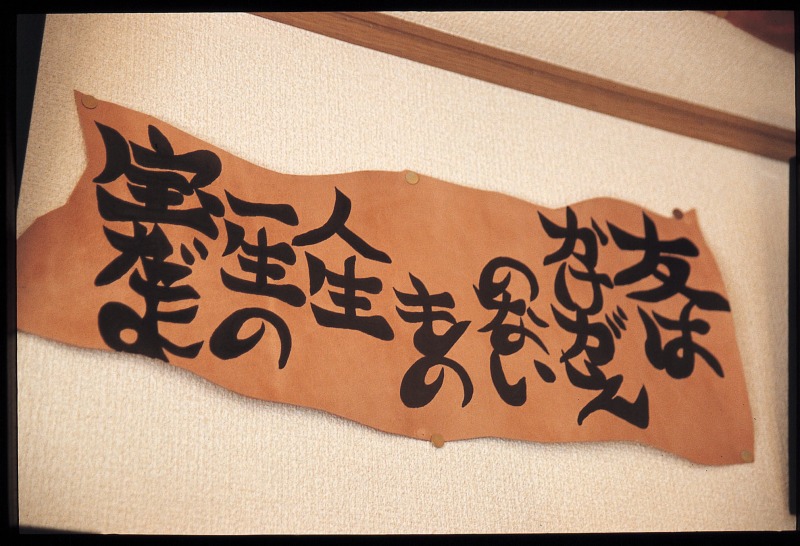 友は
かけがえ
のない
もの
人生
一生の
宝だよ